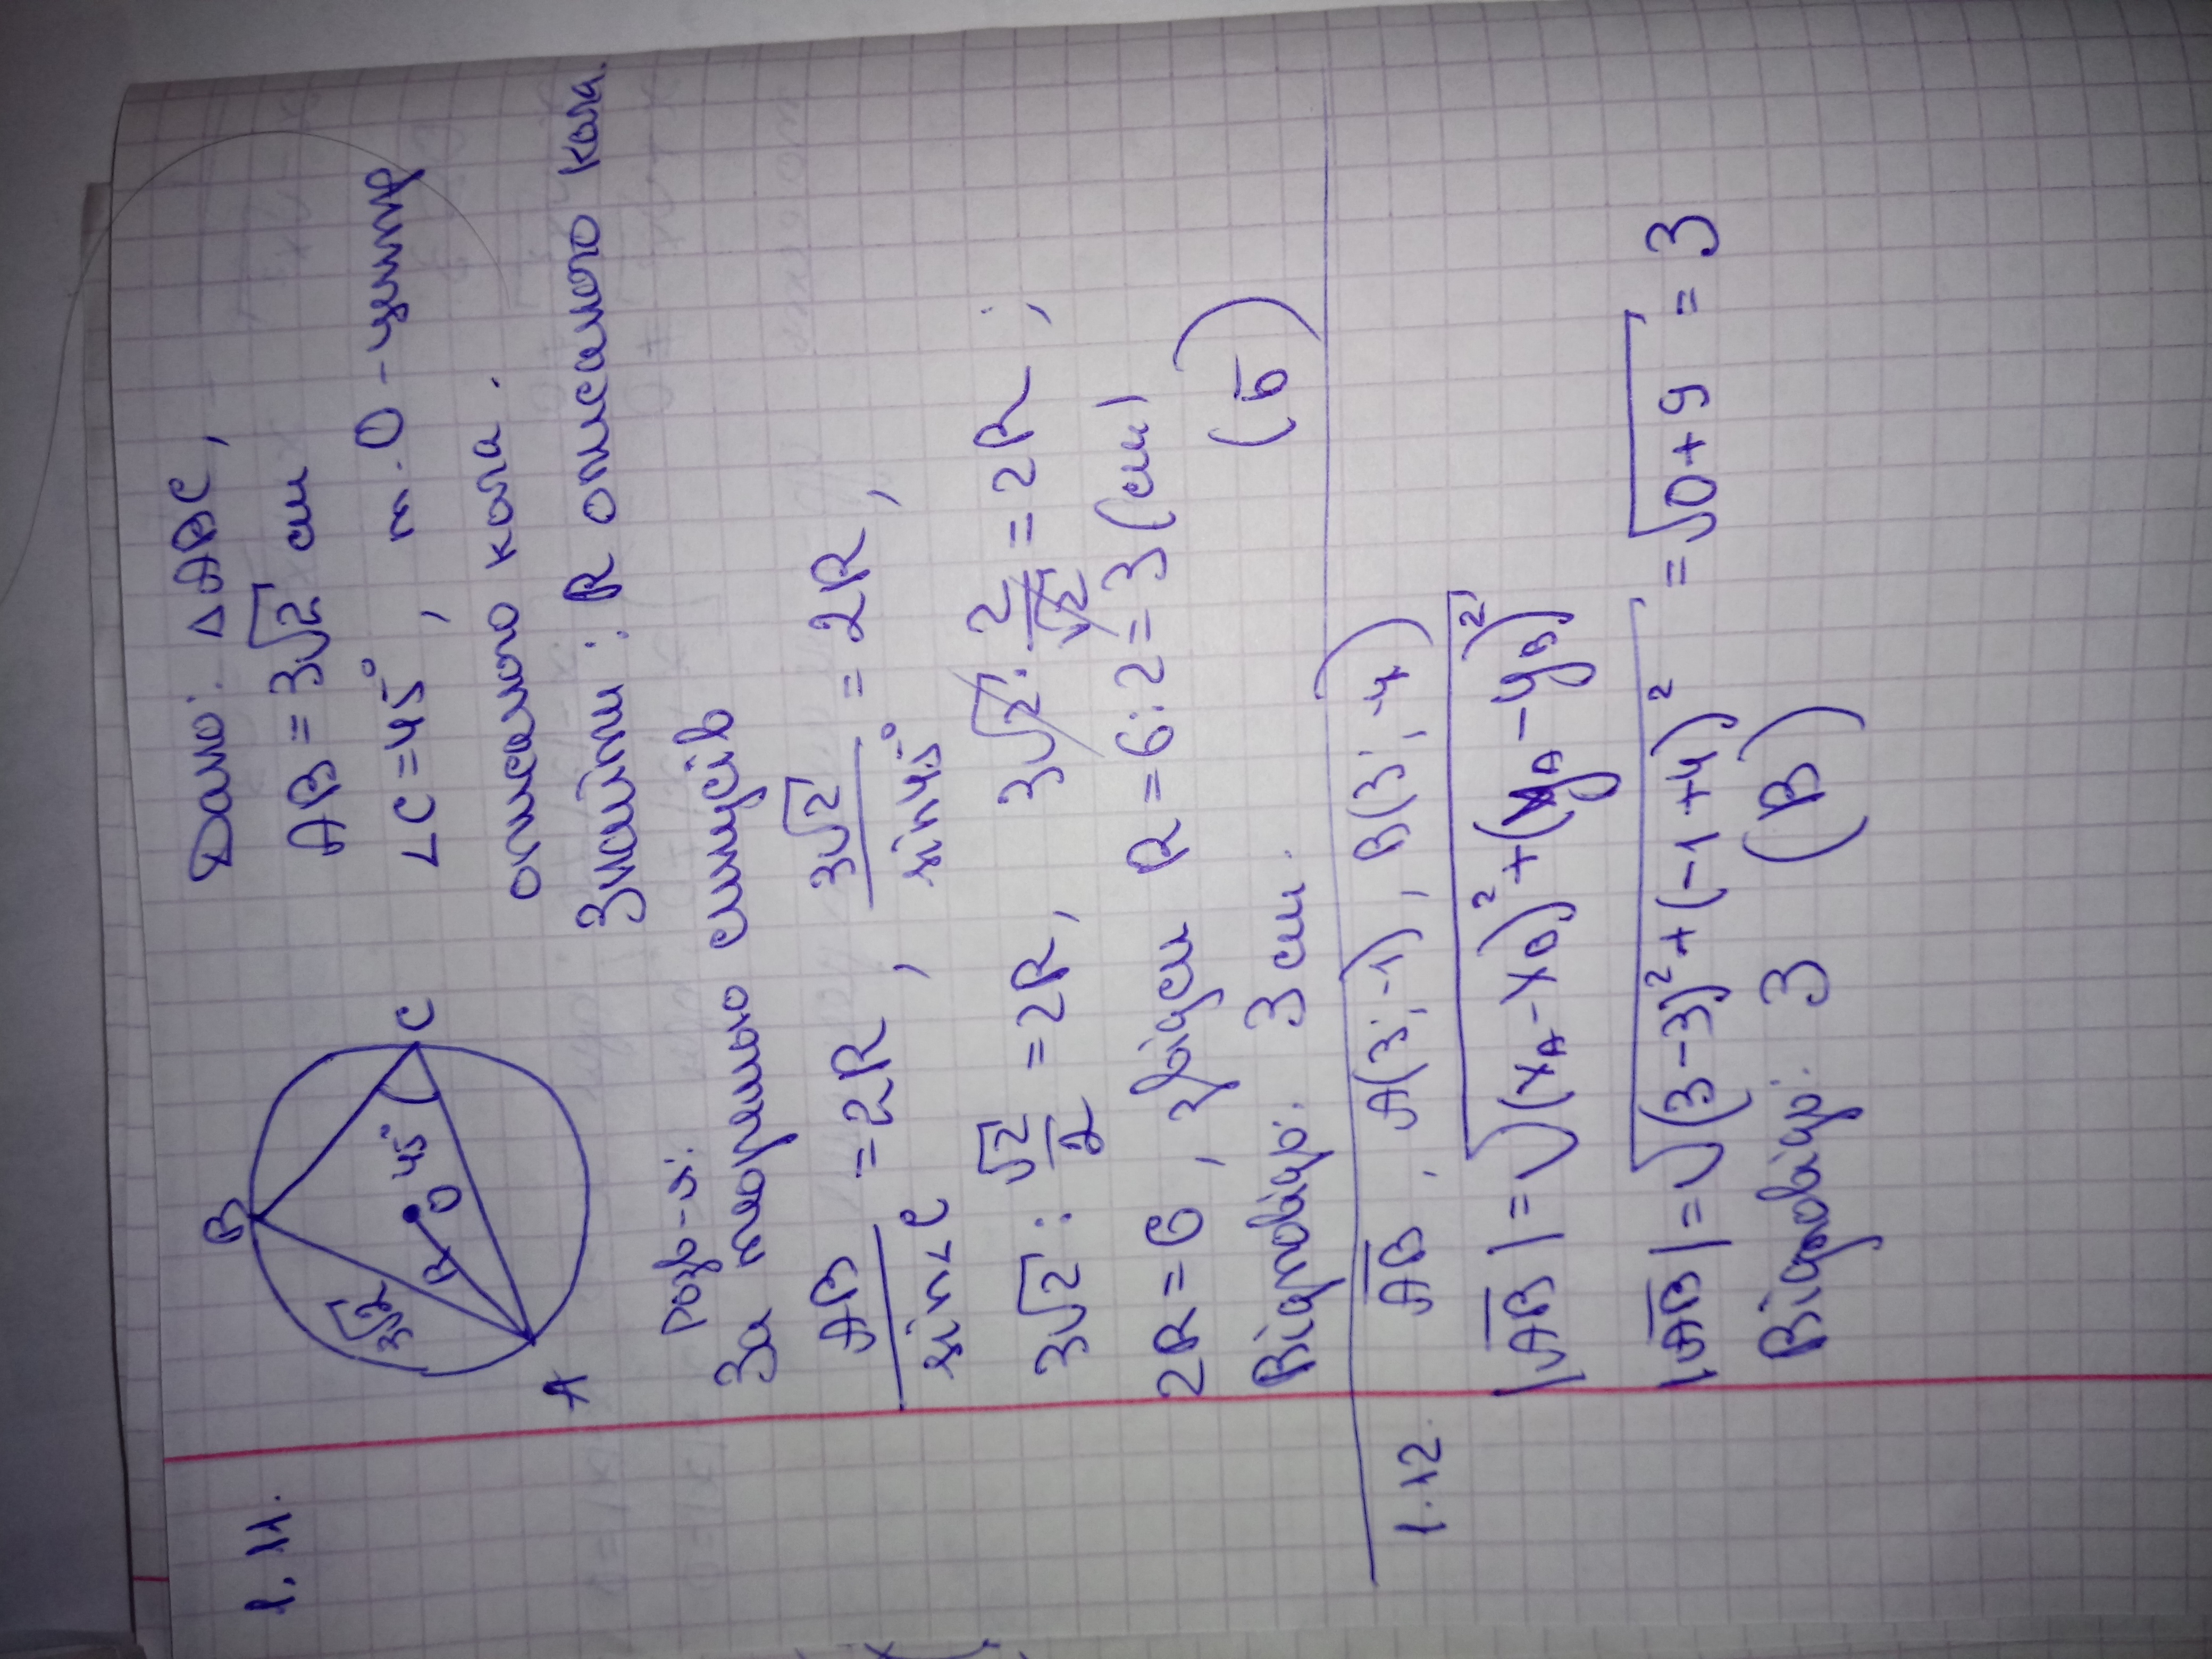 1.11.
B
3√2
R
O
45°
C
A
Дано: △ABC,
AB = 3√2 см
∠C = 45°, т. O - центр
описаного кола.
Знайти: R описаного кола.
Розв-я:
За теоремою синусів
AB/sin∠C = 2R, 3√2/sin45° = 2R,
3√2 : √2/2 = 2R, 3√2 · 2/√2 = 2R;
2R = 6, звідси R = 6:2 = 3 (см)
Відповідь: 3 см. (Б)
1.12. AB, A(3;-1), B(3;-4)
|AB| = √(xA - xB)² + (yA - yB)²
|AB| = √(3-3)² + (-1+4)² = √0+9 = 3
Відповідь: 3 (В)